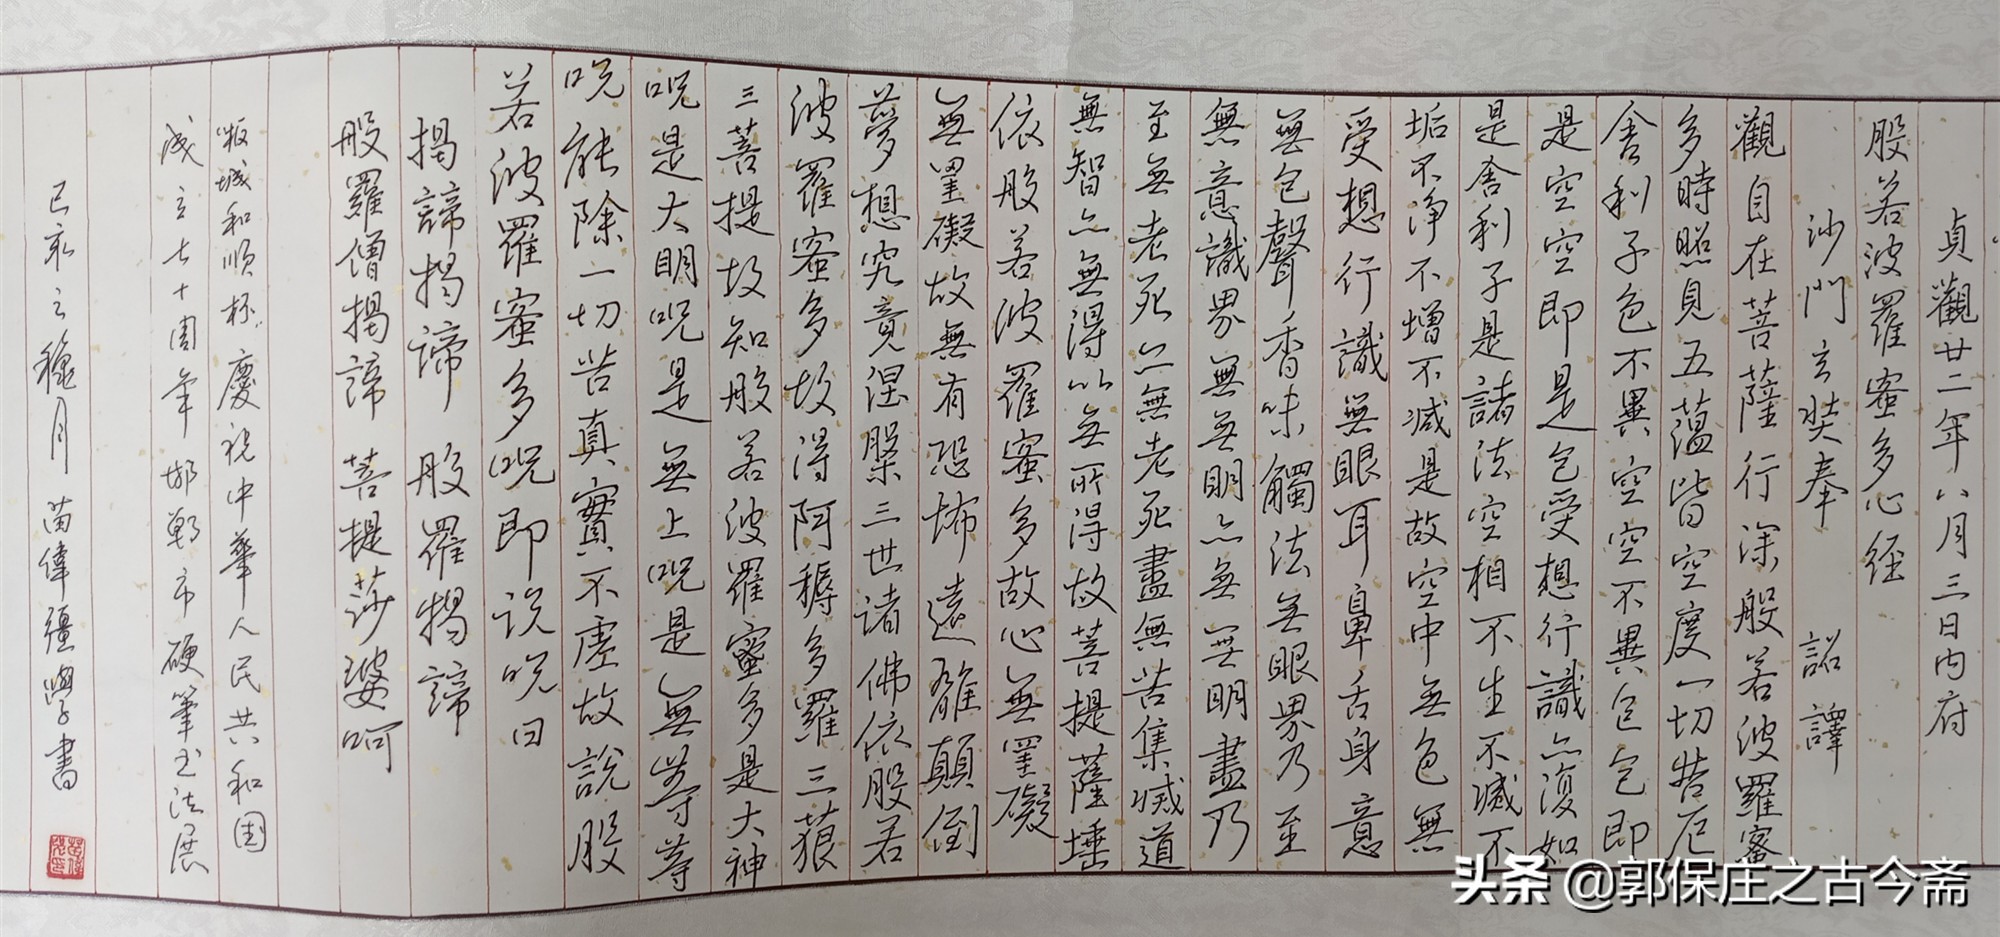 貞觀廿二年八月三日內府
般若波羅蜜多心经
沙門玄奘奉 詔譯
觀自在菩薩行深般若波羅蜜
多時照見五蕴皆空度一切苦厄
舍利子色不異空空不異色色即
是空空即是色受想行識亦復如
是舍利子是諸法空相不生不滅不
垢不淨不增不减是故空中無色無
受想行識無眼耳鼻舌身意
無色聲香味觸法無眼界乃至
無意識界無無明亦無無明盡乃
至無老死亦無老死盡無苦集滅道
無智亦無得以無所得故菩提薩埵
依般若波羅蜜多故心無罣礙
無罣礙故無有恐怖遠離顛倒
夢想究竟涅槃三世诸佛依般若
波羅蜜多故得阿耨多羅三藐
三菩提故知般若波羅蜜多是大神
呪是大明呪是無上呪是無等等
呪能除一切苦真實不虛故說般
若波羅蜜多呪即说呪曰
揭諦揭谛 般羅揭諦
般羅僧揭諦 菩提莎婆呵
板城和顺杯慶祝中華人民共和国
成立七十周年邯鄲市硬筆书法展
己亥之穐月 苗偉疆學書
头条 @郭保庄之古今斋